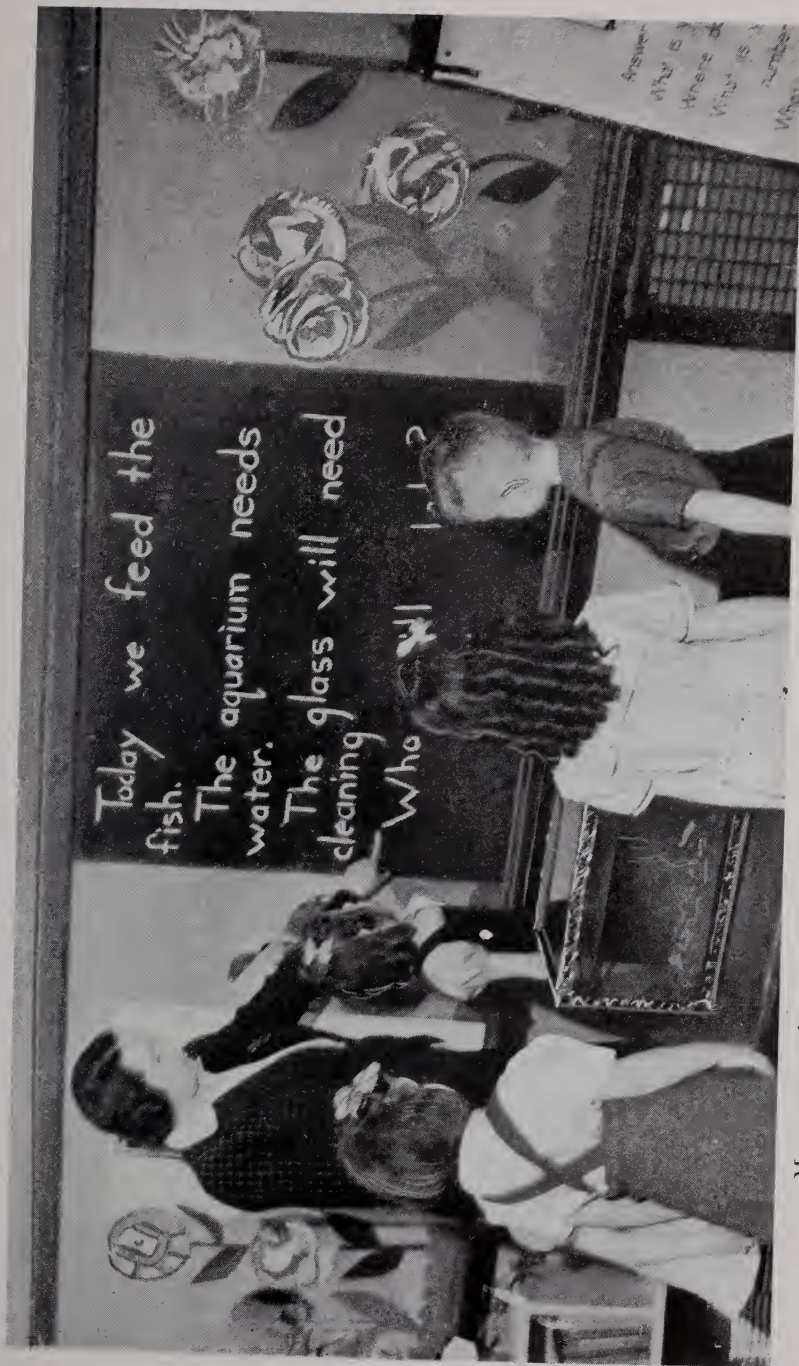 Today we feed the
fish.
The aquarium needs
water.
The glass will need
cleaning
Who will ?
Answer
What is
Where
What is
number
When